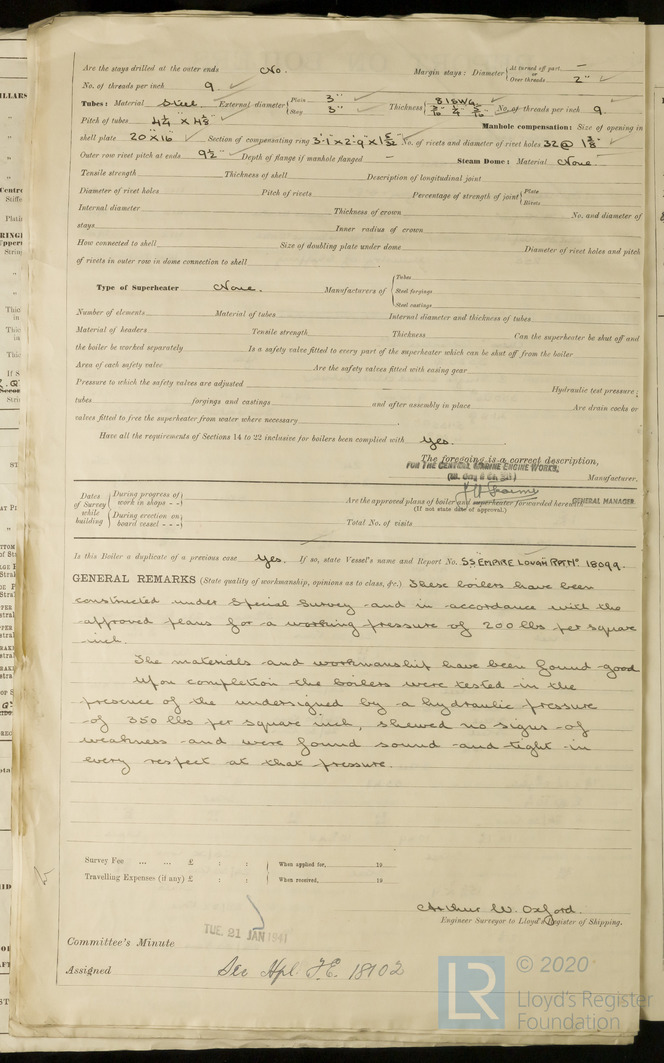 Are the stays drilled at the outer ends No. Margin stays: Diameter { At turned off part — or Over threads 2"
No. of threads per inch 9
Tubes: Material Steel External diameter { Plain 3" Stay 3" Thickness { 8 ISWG 5/16" 1/4" 3/16" No. of threads per inch 9
Pitch of tubes 4¼" × 4⅛" Manhole compensation: Size of opening in
shell plate 20" × 16" Section of compensating ring No. of rivets and diameter of rivet holes 32 @ 1⅜"
Outer row rivet pitch at ends 9½" Depth of flange if manhole flanged — Steam Dome: Material None.
Tensile strength Thickness of shell Description of longitudinal joint
Diameter of rivet holes Pitch of rivets Percentage of strength of joint { Plate Rivets
Internal diameter Thickness of crown No. and diameter of
stays Inner radius of crown
How connected to shell Size of doubling plate under dome Diameter of rivet holes and pitch
of rivets in outer row in dome connection to shell
Type of Superheater None. Manufacturers of { Tubes Steel forgings Steel castings
Number of elements Material of tubes Internal diameter and thickness of tubes
Material of headers Tensile strength Thickness Can the superheater be shut off and
the boiler be worked separately Is a safety valve fitted to every part of the superheater which can be shut off from the boiler
Area of each safety valve Are the safety valves fitted with easing gear
Pressure to which the safety valves are adjusted Hydraulic test pressure:
tubes forgings and castings and after assembly in place Are drain cocks or
valves fitted to free the superheater from water where necessary
Have all the requirements of Sections 14 to 22 inclusive for boilers been complied with Yes.
The foregoing is a correct description,
FOR THE CENTRAL MARINE ENGINE WORKS.
Manufacturer.
GENERAL MANAGER.
Dates of Survey while building { During progress of work in shops - - During erection on board vessel - - -
Are the approved plans of boiler and superheater forwarded herewith
(If not state date of approval.)
Total No. of visits
Is this Boiler a duplicate of a previous case Yes. If so, state Vessel's name and Report No. SS EMPIRE LOUGH RPT No 18099.
GENERAL REMARKS (State quality of workmanship, opinions as to class, &c.) These boilers have been
constructed under Special Survey and in accordance with the
approved plans for a working pressure of 200 lbs per square
inch.
The materials and workmanship have been found good
Upon completion the boilers were tested in the
presence of the undersigned by a hydraulic pressure
of 350 lbs per square inch, shewed no signs of
weakness and were found sound and tight in
every respect at that pressure.
Survey Fee ... ... £ : : When applied for, 19
Travelling Expenses (if any) £ : : When received, 19
Arthur W. Oxford.
Engineer Surveyor to Lloyd's Register of Shipping.
TUE. 21 JAN 1941
Committee's Minute
Assigned See Hpl. F.E. 18102
LR © 2020
Lloyd's Register
Foundation